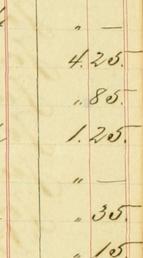 „ —
4.25.
„ 85.
1.25.
„ —
„ 35.
„ 15